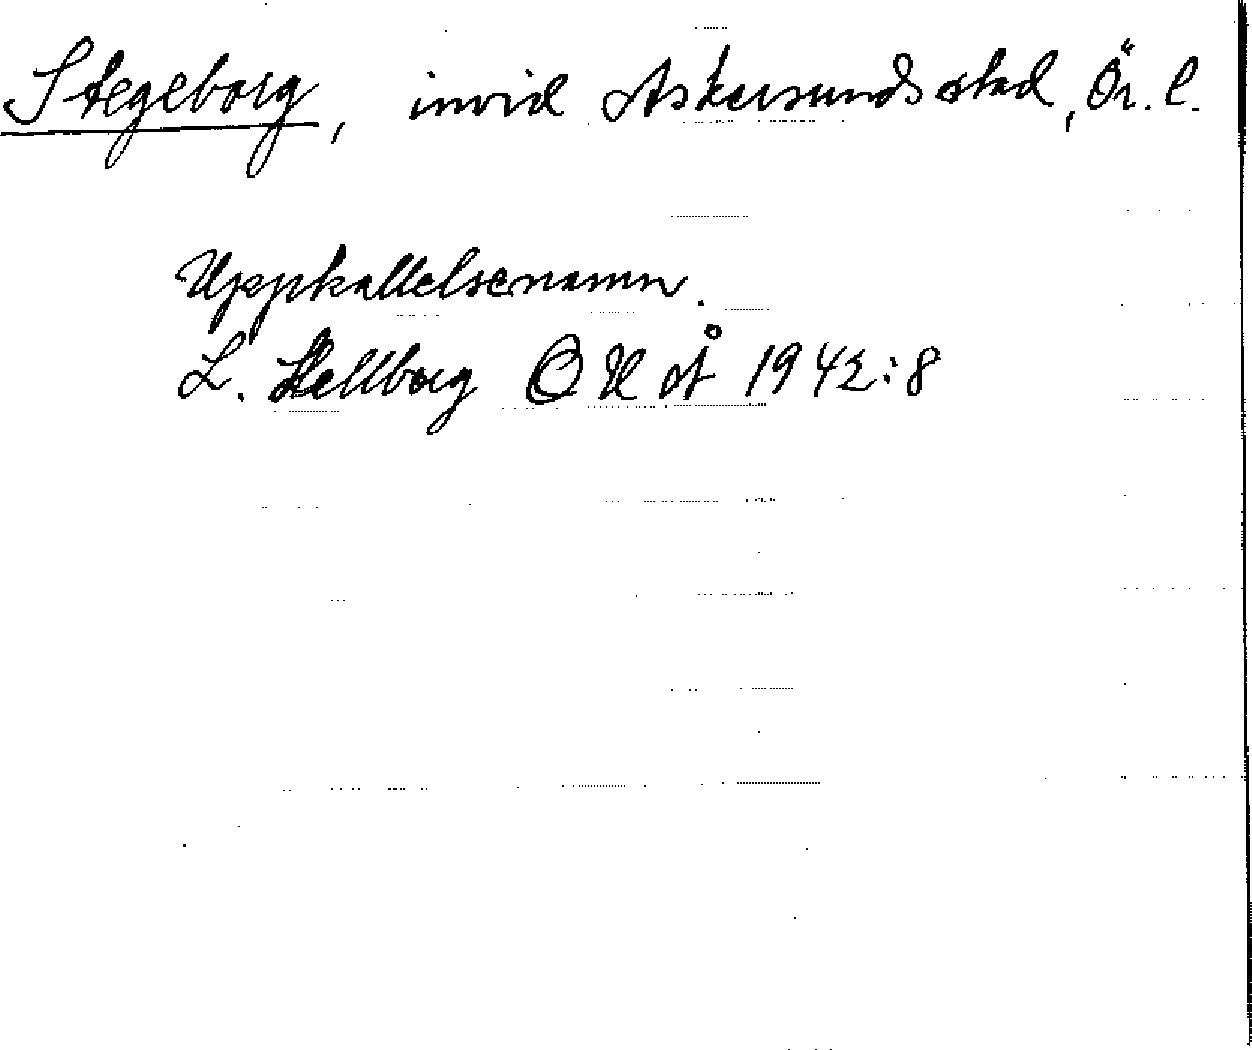 Stegeborg, invid Askersunds stad, Ör. l.
Uppkallelsenamn.
L. Hellberg OUÅ 1942:8